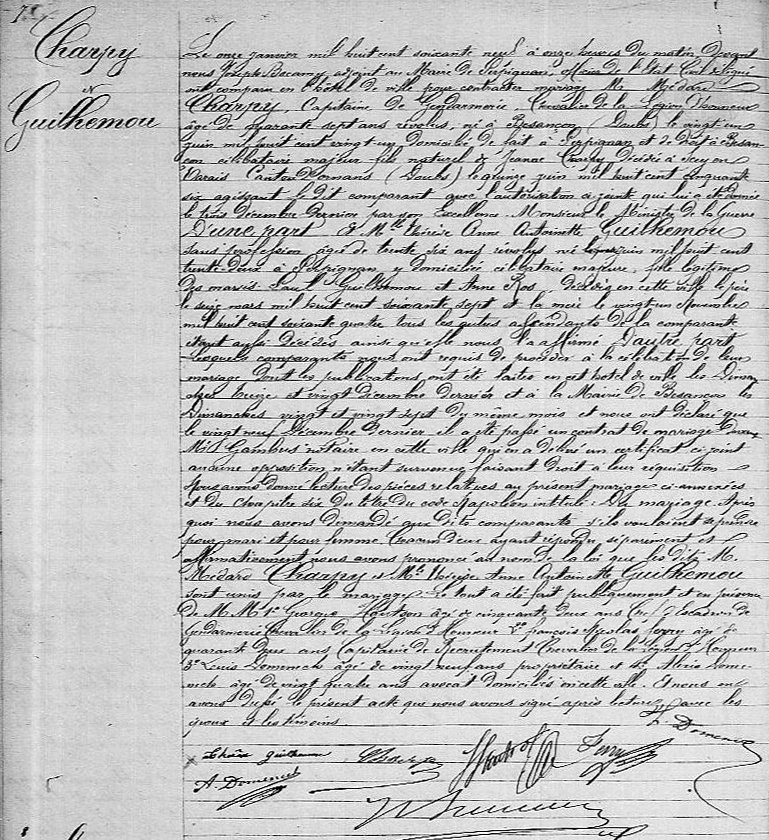 7
Charpy
N
Guilhemou
Le onze janvier mil huit cent soixante neuf à onze heures du matin, Devant
nous Joseph Bacany, adjoint au Maire de Perpignan, officier de l'Etat Civil
comparu en l'hôtel de ville pour contracter mariage Mr Médard
Charpy, Capitaine de Gendarmerie, Chevalier de la Légion d'honneur
âgé de quarante sept ans révolus, né à Besançon (Doubs) le vingt un
juin mil huit cent vingt un domicilié de fait à Perpignan et de droit à Besan-
çon célibataire majeur fils naturel de Jeanne Charpy, décédée à Scey en
Varais Canton d'Ornans (Doubs) le quinze juin mil huit cent cinquante
six agissant le dit comparant avec l'autorisation ci jointe qui lui a été donnée
le trois décembre dernier par son Excellence Monsieur le Ministre de la Guerre
D'une part & Mlle Thérèse Anne Antoinette Guilhemou
sans profession âgée de trente six ans révolus née juin mil huit cent
trente deux à Perpignan y domiciliée célibataire majeure, fille légitime
des mariés Paul Guilhemou et Anne Ros, décédés en cette ville le père
le seize mars mil huit cent soixante sept et la mère le vingt un Novembre
mil huit cent soixante quatre tous les autres ascendants de la comparante
étant aussi décédés ainsi qu'elle nous l'a affirmé D'autre part
Lesquels comparants nous ont requis de procéder à la célébration de leur
mariage dont les publications ont été faites en cet hôtel de ville les Diman-
ches treize et vingt décembre dernier et à la Mairie de Besançon les
Dimanches vingt et vingt sept du même mois et nous ont déclaré que
le vingt neuf décembre dernier il a été passé un contrat de mariage devant
Gambus notaire en cette ville qui en a délivré un certificat ci joint
aucune opposition n'étant survenue faisant droit à leur réquisition
Nous avons donné lecture des pièces relatives au présent mariage ci-annexées
et du chapitre six du titre du code Napoléon intitulé : Du mariage. Après
quoi nous avons demandé aux dits comparants s'ils voulaient se prendre
pour mari et pour femme. Chacun d'eux ayant répondu séparément et
affirmativement nous avons prononcé au nom de la loi que les dits M.
Médard Charpy et Mlle Thérèse Anne Antoinette Guilhemou
sont unis par le mariage. Le tout a été fait publiquement et en présence
de M.M. 1º âgé de cinquante deux ans Chef d'escadron de
Gendarmerie Chevalier de la Légion d'Honneur 2º François Nicolas Ferry âgé de
quarante ans Capitaine de Recrutement Chevalier de la Légion d'Honneur
3º Louis Domenech âgé de vingt neuf ans propriétaire et 4º Alexis Dome-
nech âgé de vingt quatre ans avocat domiciliés en cette ville. Et nous en
avons dressé le présent acte que nous avons signé après lecture avec les
époux et les témoins
L. Domenech
Thérèse Guilhemou
Charpy
Ferry
A. Domenech